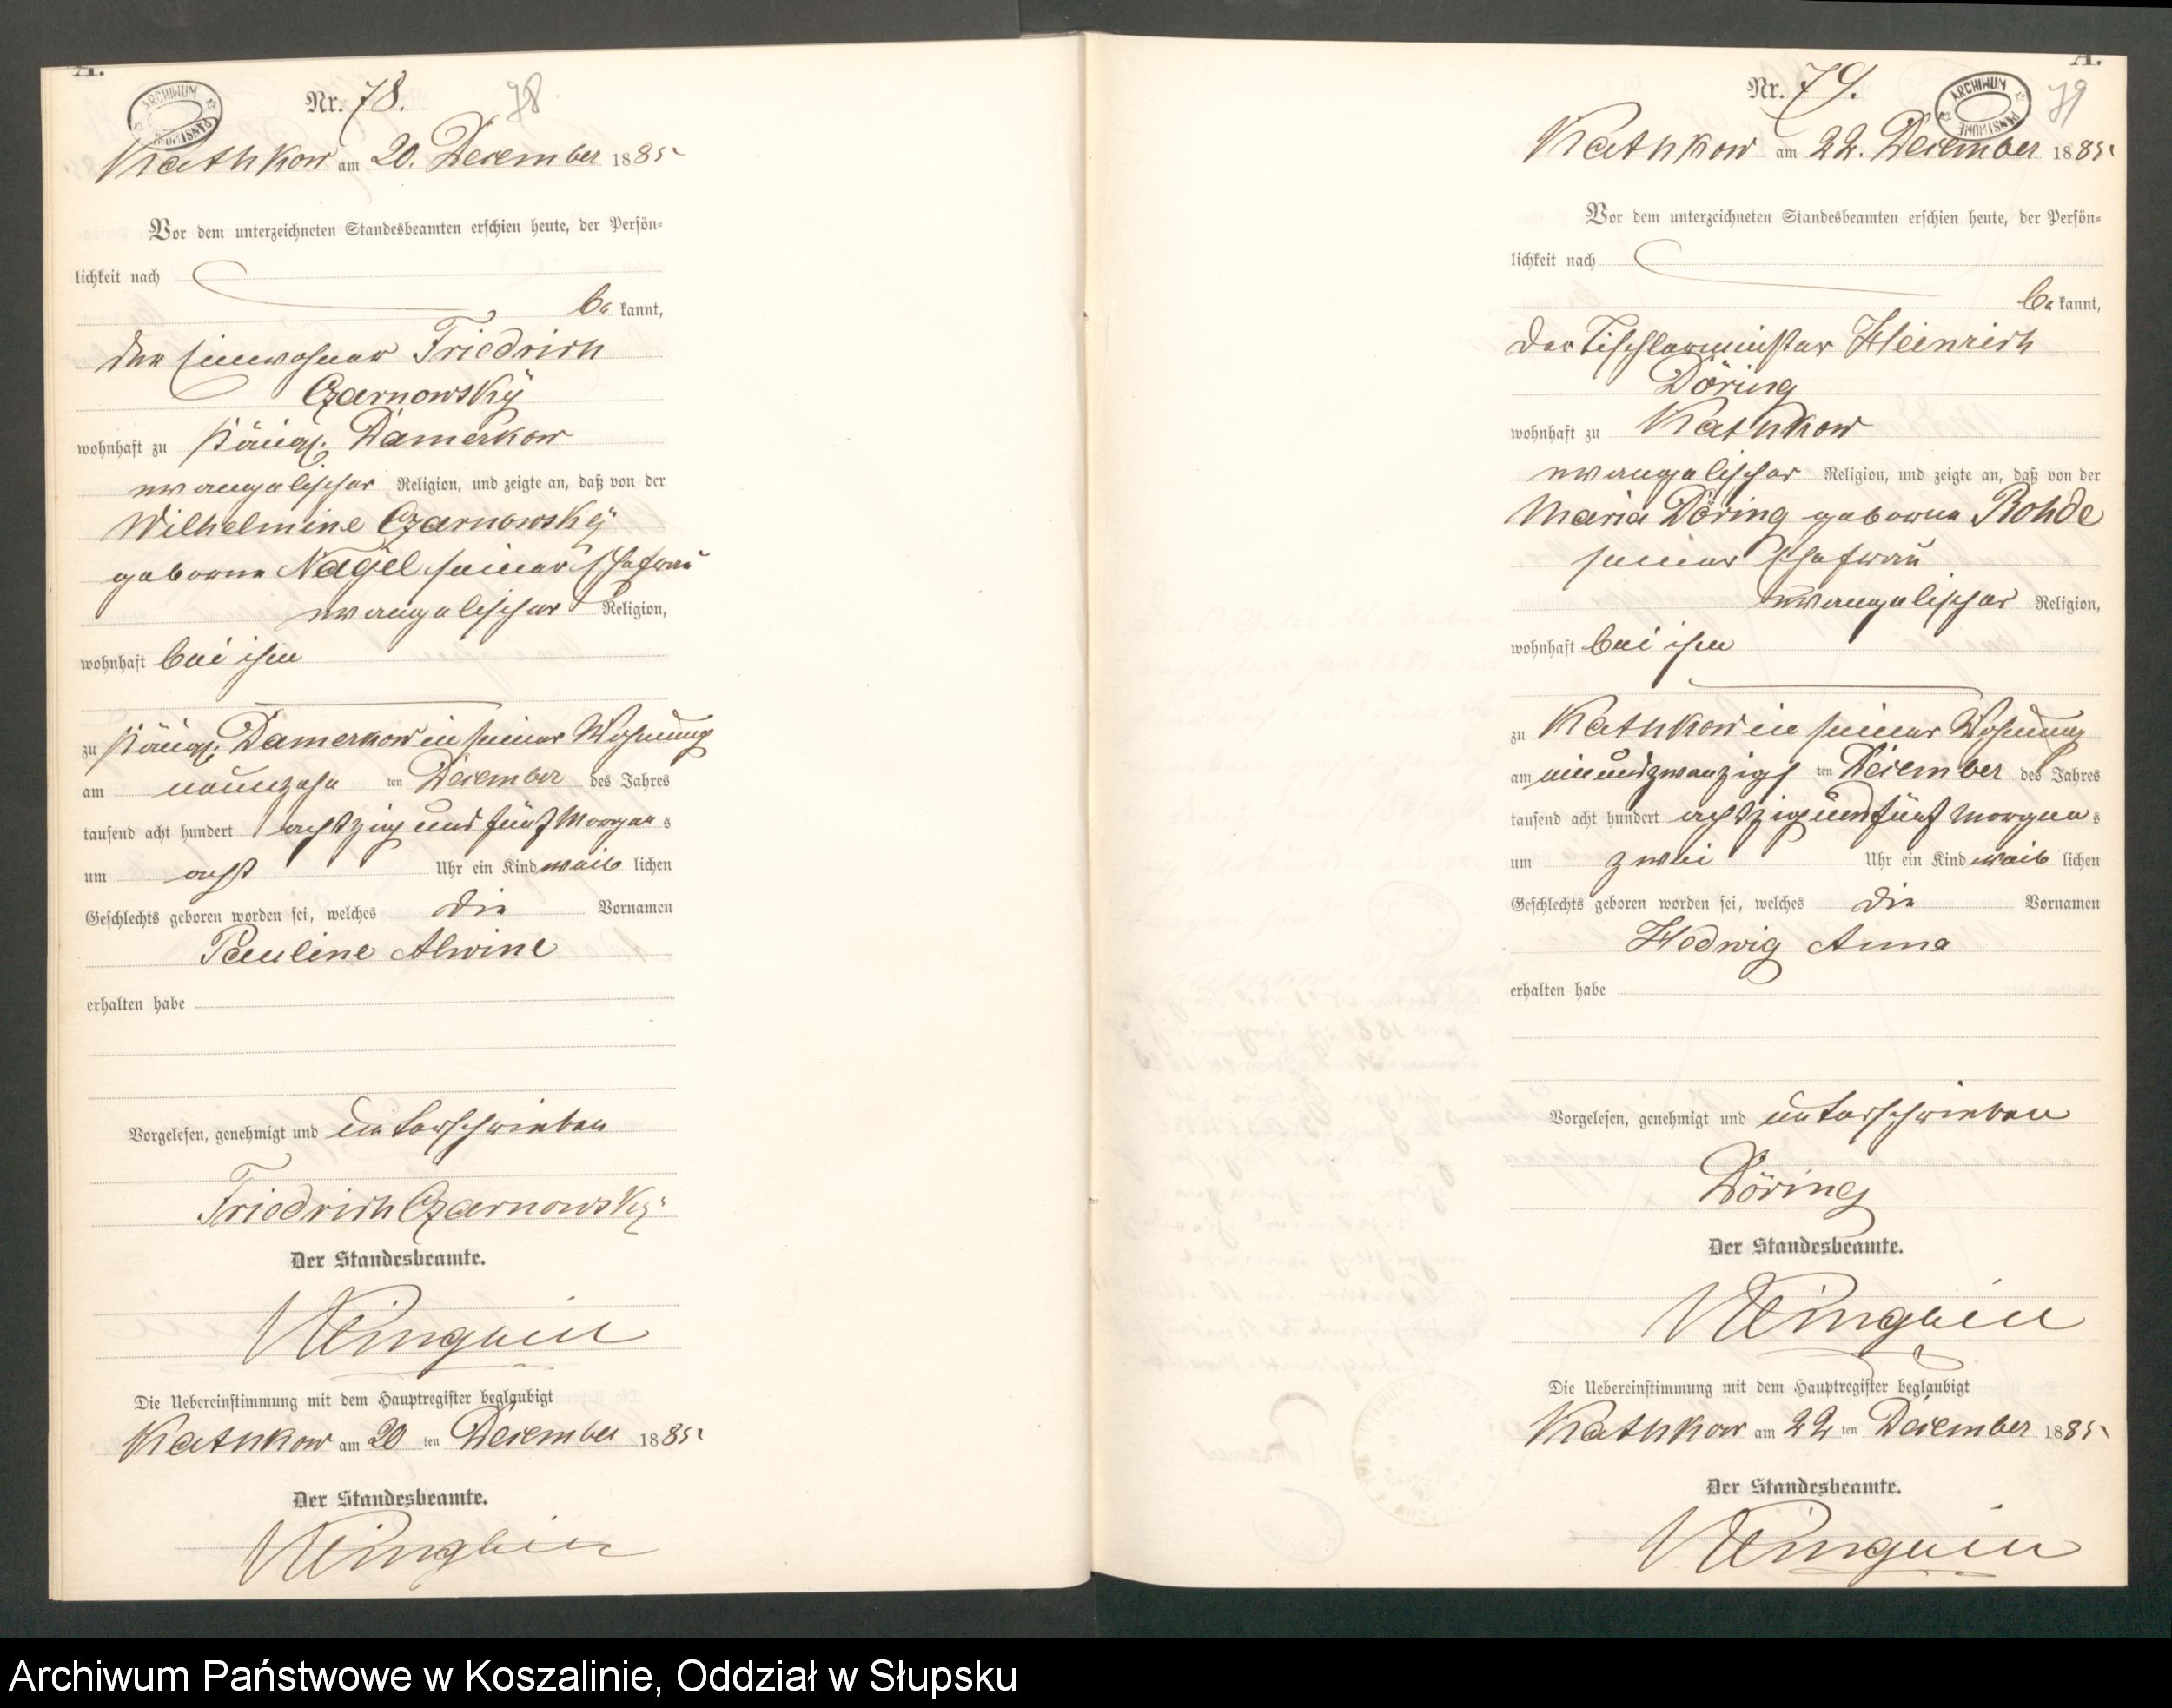 A.
ARCHIWUM PAŃSTWOWE
Nr. 78.
78
Kathkow am 20. December 1885
Vor dem unterzeichneten Standesbeamten erschien heute, der Persön-
lichkeit nach
be kannt,
der Einwohner Friedrich
Czarnowsky
wohnhaft zu Königl. Damerkow
evangelischer Religion, und zeigte an, daß von der
Wilhelmine Czarnowsky
geborne Nagel seiner Ehefrau
evangelischer Religion,
wohnhaft bei ihm
zu Königl. Damerkow in seiner Wohnung
am neunzehn ten December des Jahres
tausend acht hundert achtzig und fünf Morgen s
um acht Uhr ein Kind weib lichen
Geschlechts geboren worden sei, welches die Vornamen
Pauline Alwine
erhalten habe
Vorgelesen, genehmigt und unterschrieben
Friedrich Czarnowsky
Der Standesbeamte.
Die Uebereinstimmung mit dem Hauptregister beglaubigt
Kathkow am 20 ten December 1885
Der Standesbeamte.
A.
Nr. 79.
ARCHIWUM PAŃSTWOWE
79
Kathkow am 22. December 1885
Vor dem unterzeichneten Standesbeamten erschien heute, der Persön-
lichkeit nach
be kannt,
der Tischlermeister Heinrich
Döring
wohnhaft zu Kathkow
evangelischer Religion, und zeigte an, daß von der
Maria Döring geborne Rohde
seiner Ehefrau
evangelischer Religion,
wohnhaft bei ihm
zu Kathkow in seiner Wohnung
am einundzwanzigs ten December des Jahres
tausend acht hundert achtzig und fünf Morgen s
um zwei Uhr ein Kind weib lichen
Geschlechts geboren worden sei, welches die Vornamen
Hedwig Anna
erhalten habe
Vorgelesen, genehmigt und unterschrieben
Döring
Der Standesbeamte.
Die Uebereinstimmung mit dem Hauptregister beglaubigt
Kathkow am 22 ten December 1885
Der Standesbeamte.
Archiwum Państwowe w Koszalinie, Oddział w Słupsku